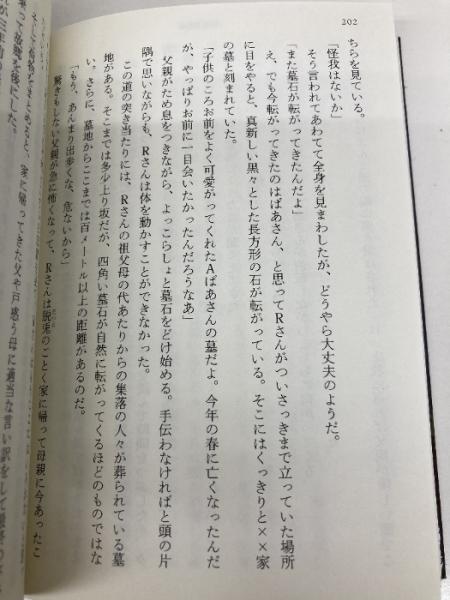 202
ちらを見ている。
「怪我はないか」
そう言われてあわてて全身を見まわしたが、どうやら大丈夫のようだ。
「また墓石が転がってきたんだよ」
え、でも今転がってきたのはばあさん、と思ってRさんがついさっきまで立っていた場所
に目をやると、真新しい黒々とした長方形の石が転がっている。そこにはくっきりと××家
の墓と刻まれていた。
「子供のころお前をよく可愛がってくれたAばあさんの墓だよ。今年の春に亡くなったんだ
が、やっぱりお前に一目会いたかったんだろうなあ」
父親がため息をつきながら、よっこらしょと墓石をどけ始める。手伝わなければと頭の片
隅で思いながらも、Rさんは体を動かすことができなかった。
この道の突き当たりには、Rさんの祖父母の代あたりからの集落の人々が葬られている墓
地がある。そこまでは多少上り坂だが、四角い墓石が自然に転がってくるほどのものではな
い。さらに、墓地からここまでは百メートル以上の距離があるのだ。
「もう、あんまり出歩くな、危ないから」
驚きもしない父親が急に怖くなって、Rさんは脱兎のごとく家に帰って母親に今あったこ
とめると、家に帰ってきた父や戸惑う母に適当な言い訳をして